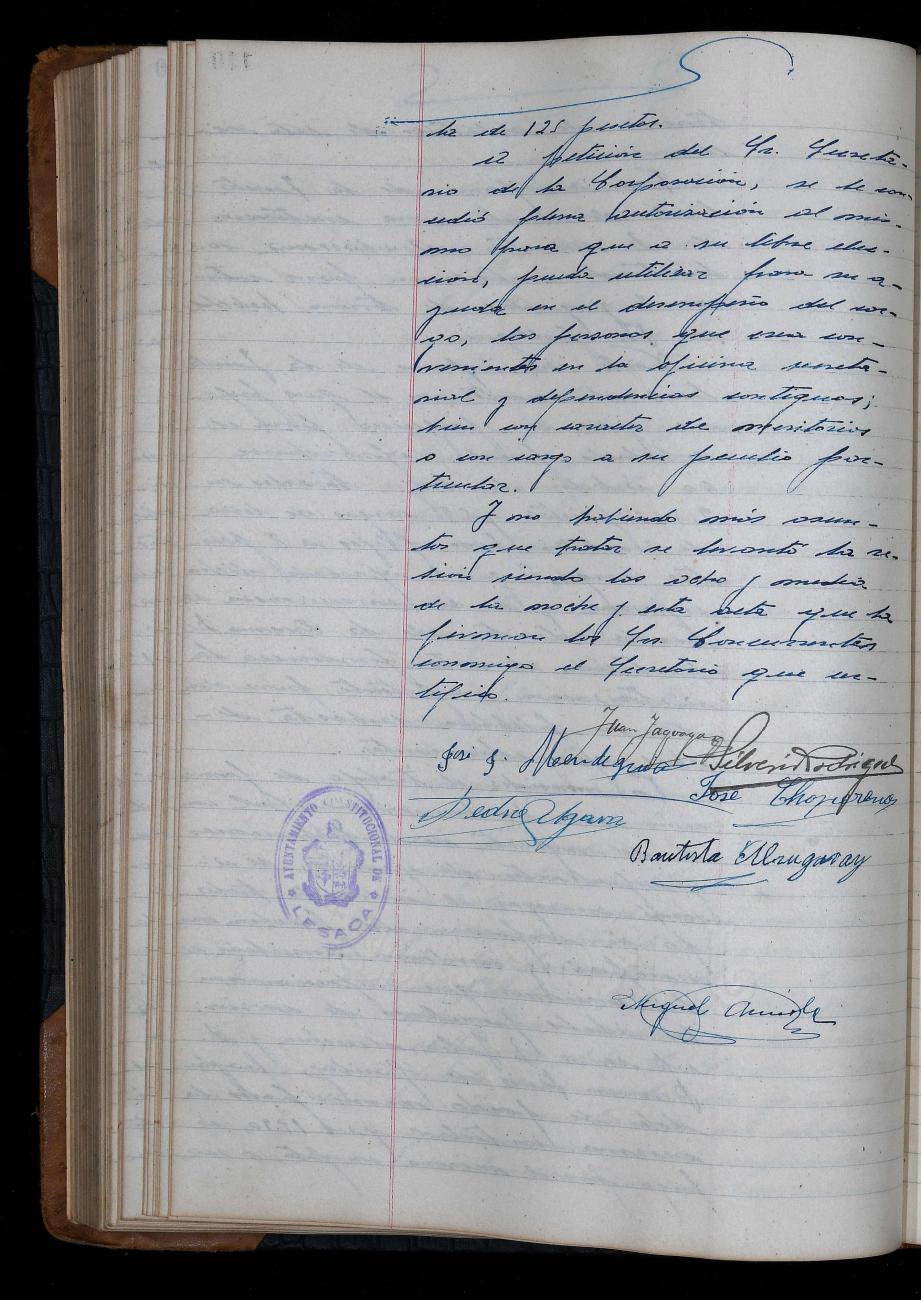 ta de 125 pesetas.
A petición del Sr. Secreta-
rio de la Corporación, se le con-
cedió plena autorización al mis-
mo para que a su libre elec-
ción, pueda utilizar para su a-
yuda en el desempeño del car-
go, las personas que crea con-
venientes en la oficina secreta-
rial y dependencias contiguas;
bien con caracter de meritorios
o con cargo a su peculio par-
ticular.
Y no habiendo más asun-
tos que tratar se levantó la se-
sión siendo las ocho y media
de la noche y esta acta que la
firman los Srs. Concurrentes
conmigo el Secretario que cer-
tifico.
Juan
José J. Mendegua Silverio Rodriguez
José
Pedro
Bautista
Miguel
AYUNTAMIENTO CONSTITUCIONAL DE
LESACA